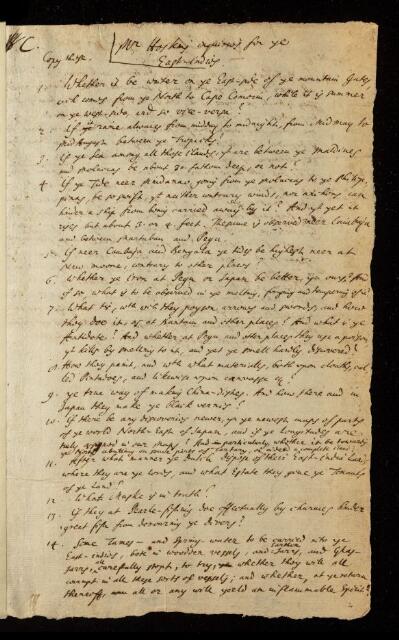 Mr Hoskins inquiries for ye
East-indies
Copy these.
1. Whether it be winter on ye East-side of ye mountain Gates
wch comes from ye North to Cape Comorin, while it is summer
on ye west-side, and so vice-versa?
2. If it raine always from midday to midnight, from Mid may to
mid August between ye Tropicks?
3. If ye Sea among all those Islands, yt are between ye Maldives
and moluccas be about 30 fathom deep, or not?
4. If ye Tide neer Mindanao, going from ye moluccas to ye Philip-
pines, be so swift, yt neither contrary winds, nor anchors can
hinder a ship from being carried away by it? And yt yet it
rises but about 3. or 4 feet. The same is observed neer Cambaja
and between Martaban and Pegu.
5. If neer Cambaja and Bengala ye tides be highest neer at
New moone, contrary to other places?
6. Whether ye Iron at Pegu or Japan be better, yn ours; And
if so what is to be observed in ye melting, forging and tempering of it?
7. What tis, wth wch they poyson arrows and swords, and how
they doe it, as at Bantam and other places? And what is ye
Antidote? And whether at Pegu and other places they use a poyson,
yt kills by smelling to it, and yet ye smell hardly discerned?
8. How they paint, and wth what materials, both upon cloths, cal-
led Pintadoes, and likewise upon
9. ye true way of making China-dishes. And how there and in
Japan they make ye black vernish?
10. If there be any discoveries newer, yn ye newest maps of parts
of ye world North-East of Japan, and if ye longitudes are
truly in our maps? And in particular whether
11. After what manner ye Dutch dispose of their East-India land,
where they are ye Lords and what Estate they give ye Tenants
of ye Land?
12. What Muske is in truth?
13. If they at Pearle-fishing doe effectually by charmes hinder
great fish from devouring ye divers?
14. Some Tames- and Spring-water to be carried into ye
East-indies, both in wooden vessels, and earthen Jarrs, and Glas-
all carefully stopt, to try, whether they will all
corrupt in all these sorts of vessels; and whether, at ye return
thereoff, am all or any will yeeld an inflammable Spirit?